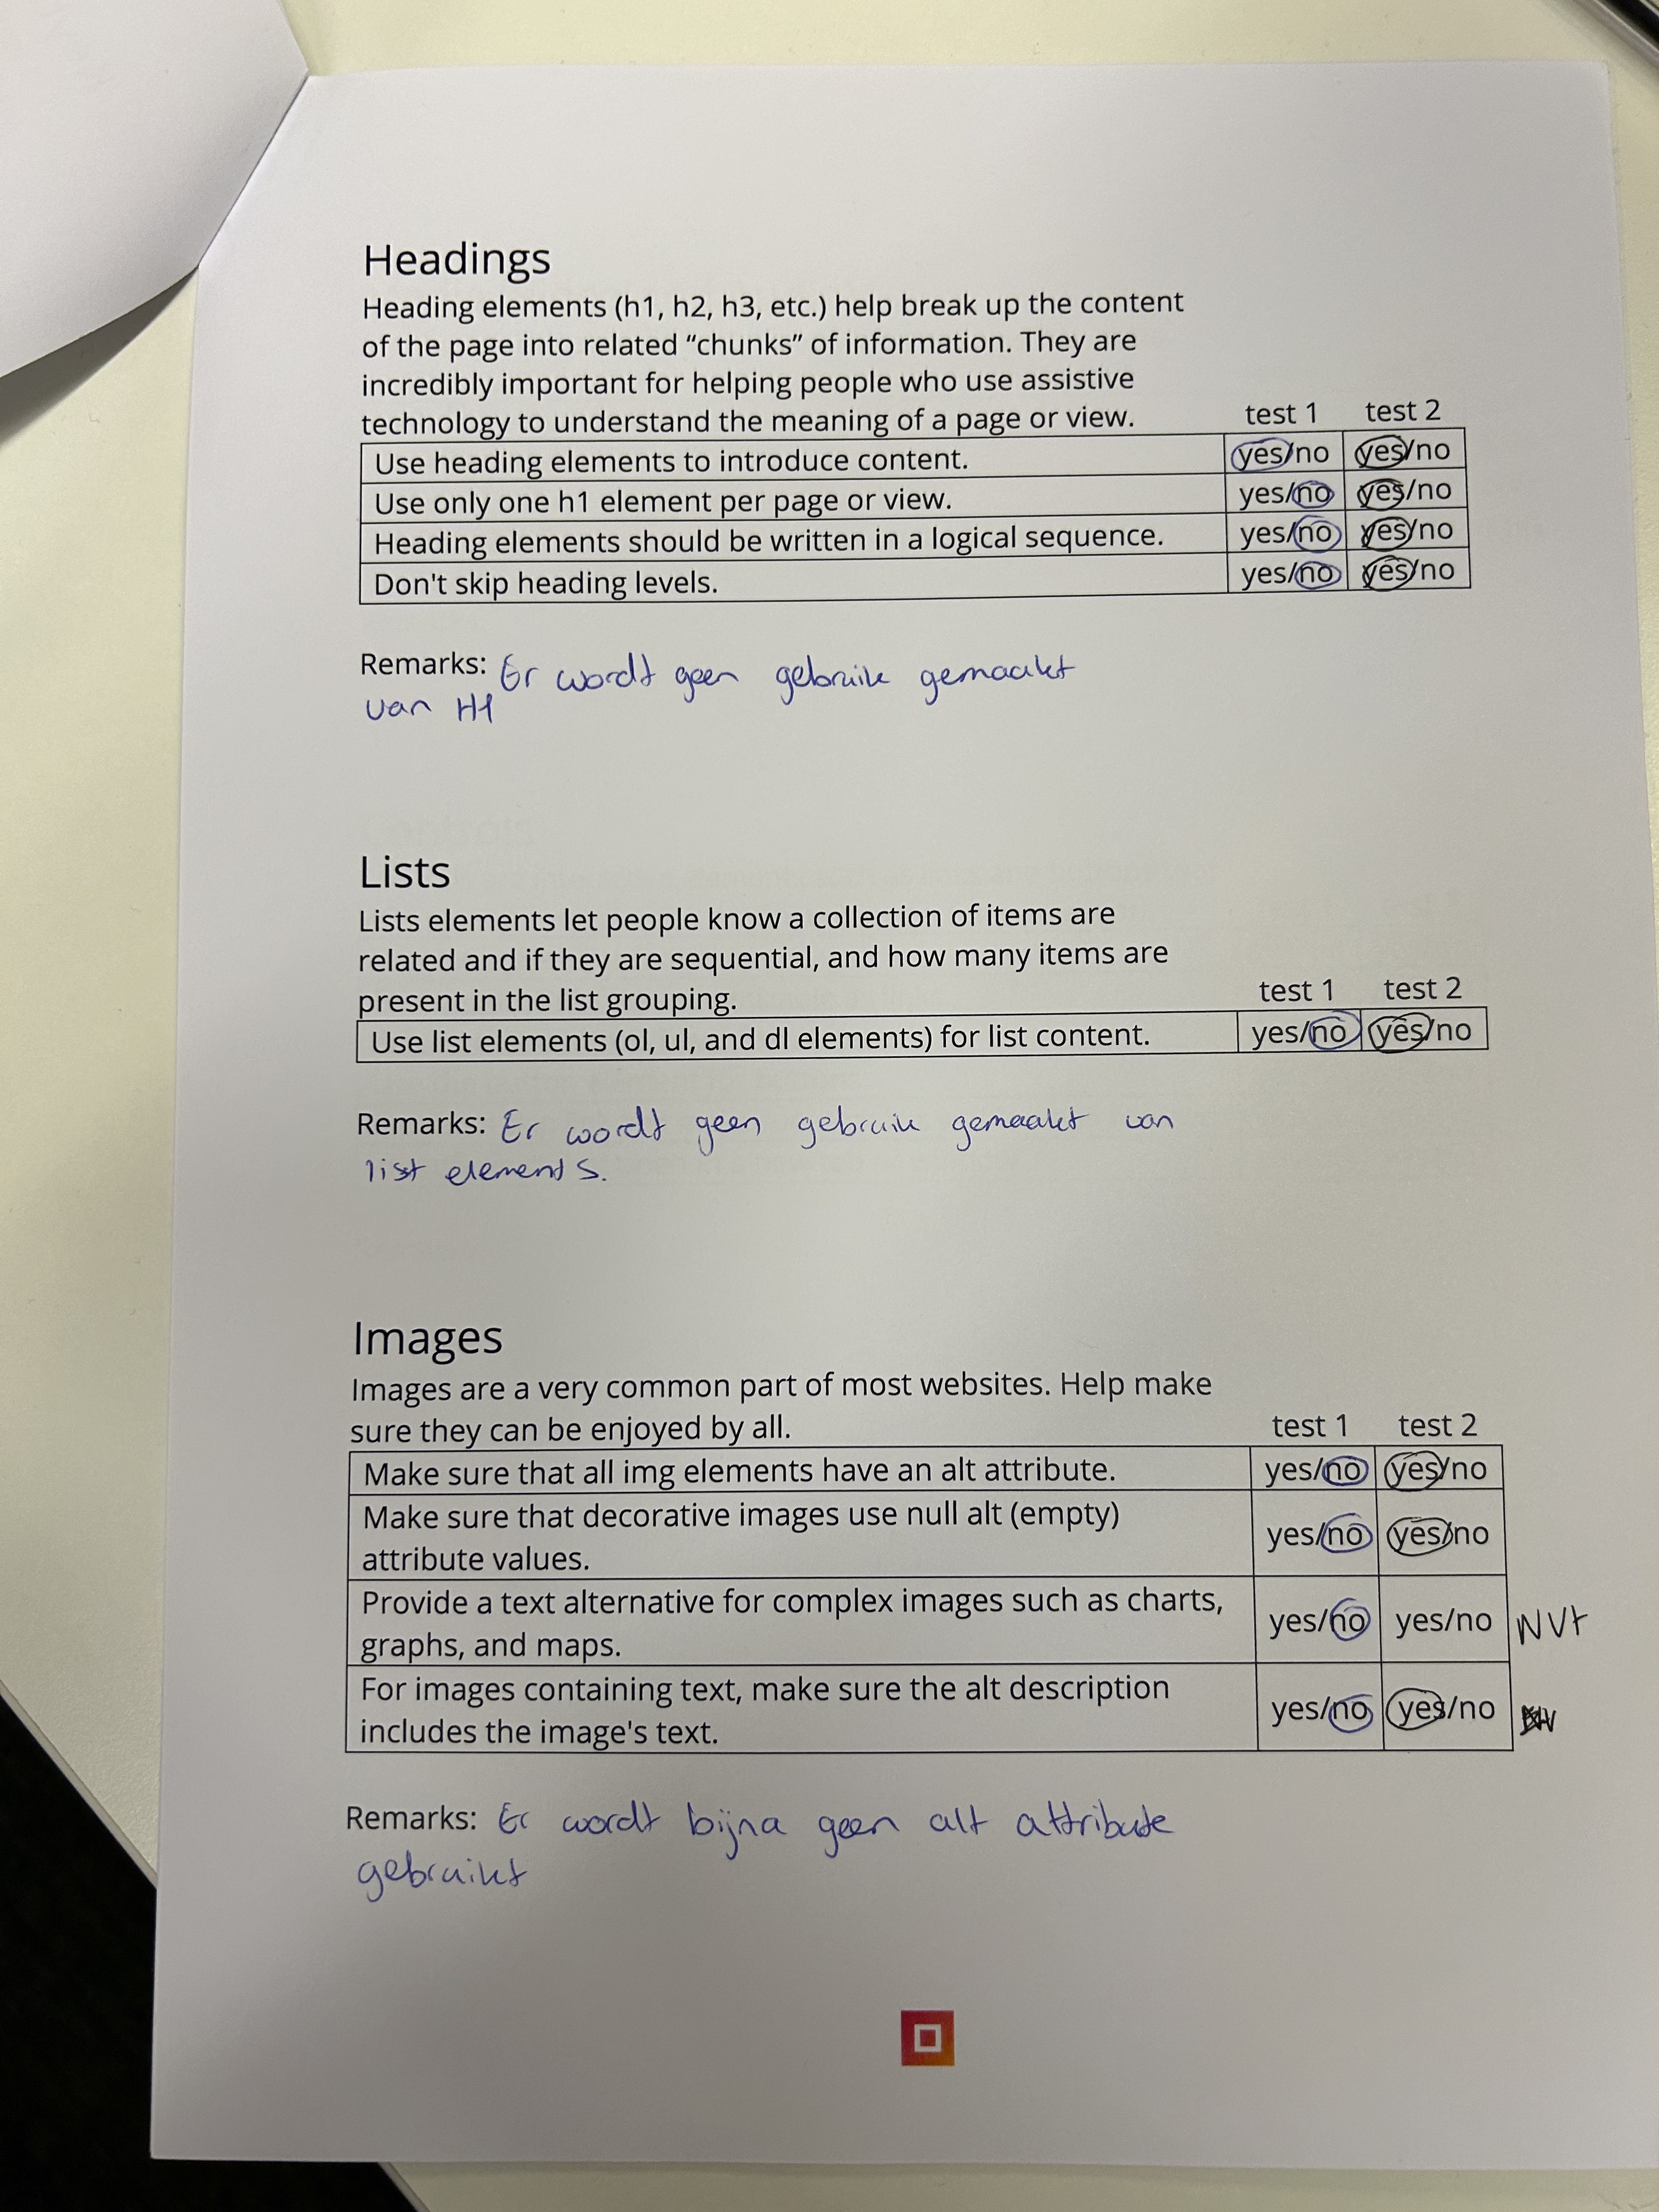 Headings
Heading elements (h1, h2, h3, etc.) help break up the content
of the page into related “chunks” of information. They are
incredibly important for helping people who use assistive
technology to understand the meaning of a page or view. test 1 test 2
Use heading elements to introduce content. yes/no yes/no
Use only one h1 element per page or view. yes/no yes/no
Heading elements should be written in a logical sequence. yes/no yes/no
Don't skip heading levels. yes/no yes/no
Remarks: Er wordt geen gebruik gemaakt
van H1
Lists
Lists elements let people know a collection of items are
related and if they are sequential, and how many items are
present in the list grouping. test 1 test 2
Use list elements (ol, ul, and dl elements) for list content. yes/no yes/no
Remarks: Er wordt geen gebruik gemaakt van
list elements.
Images
Images are a very common part of most websites. Help make
sure they can be enjoyed by all. test 1 test 2
Make sure that all img elements have an alt attribute. yes/no yes/no
Make sure that decorative images use null alt (empty)
attribute values. yes/no yes/no
Provide a text alternative for complex images such as charts,
graphs, and maps. yes/no yes/no NVt
For images containing text, make sure the alt description
includes the image's text. yes/no yes/no
Remarks: Er wordt bijna geen alt attribute
gebruikt